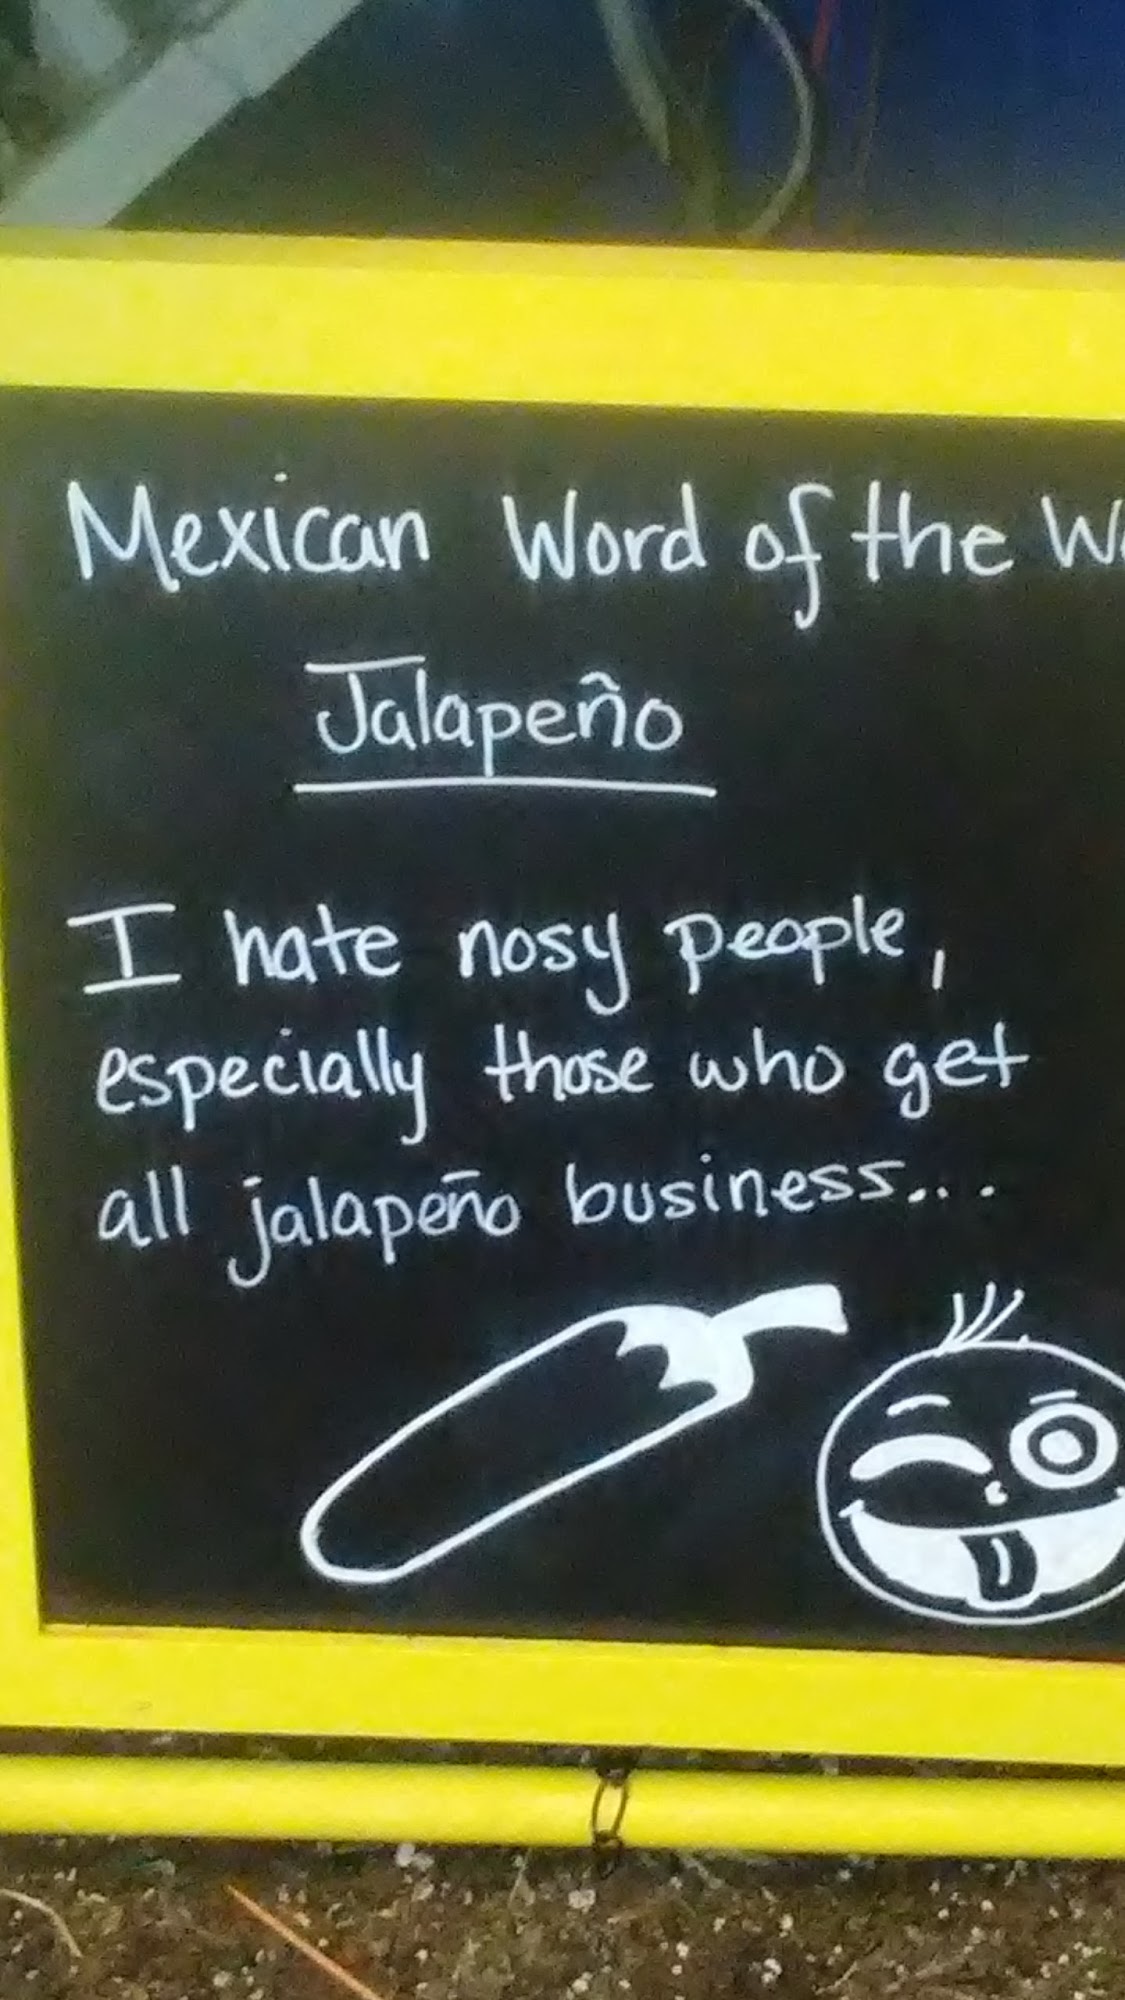 Mexican Word of the
Jalapeño
I hate nosy people,
especially those who get
all jalapeño business...